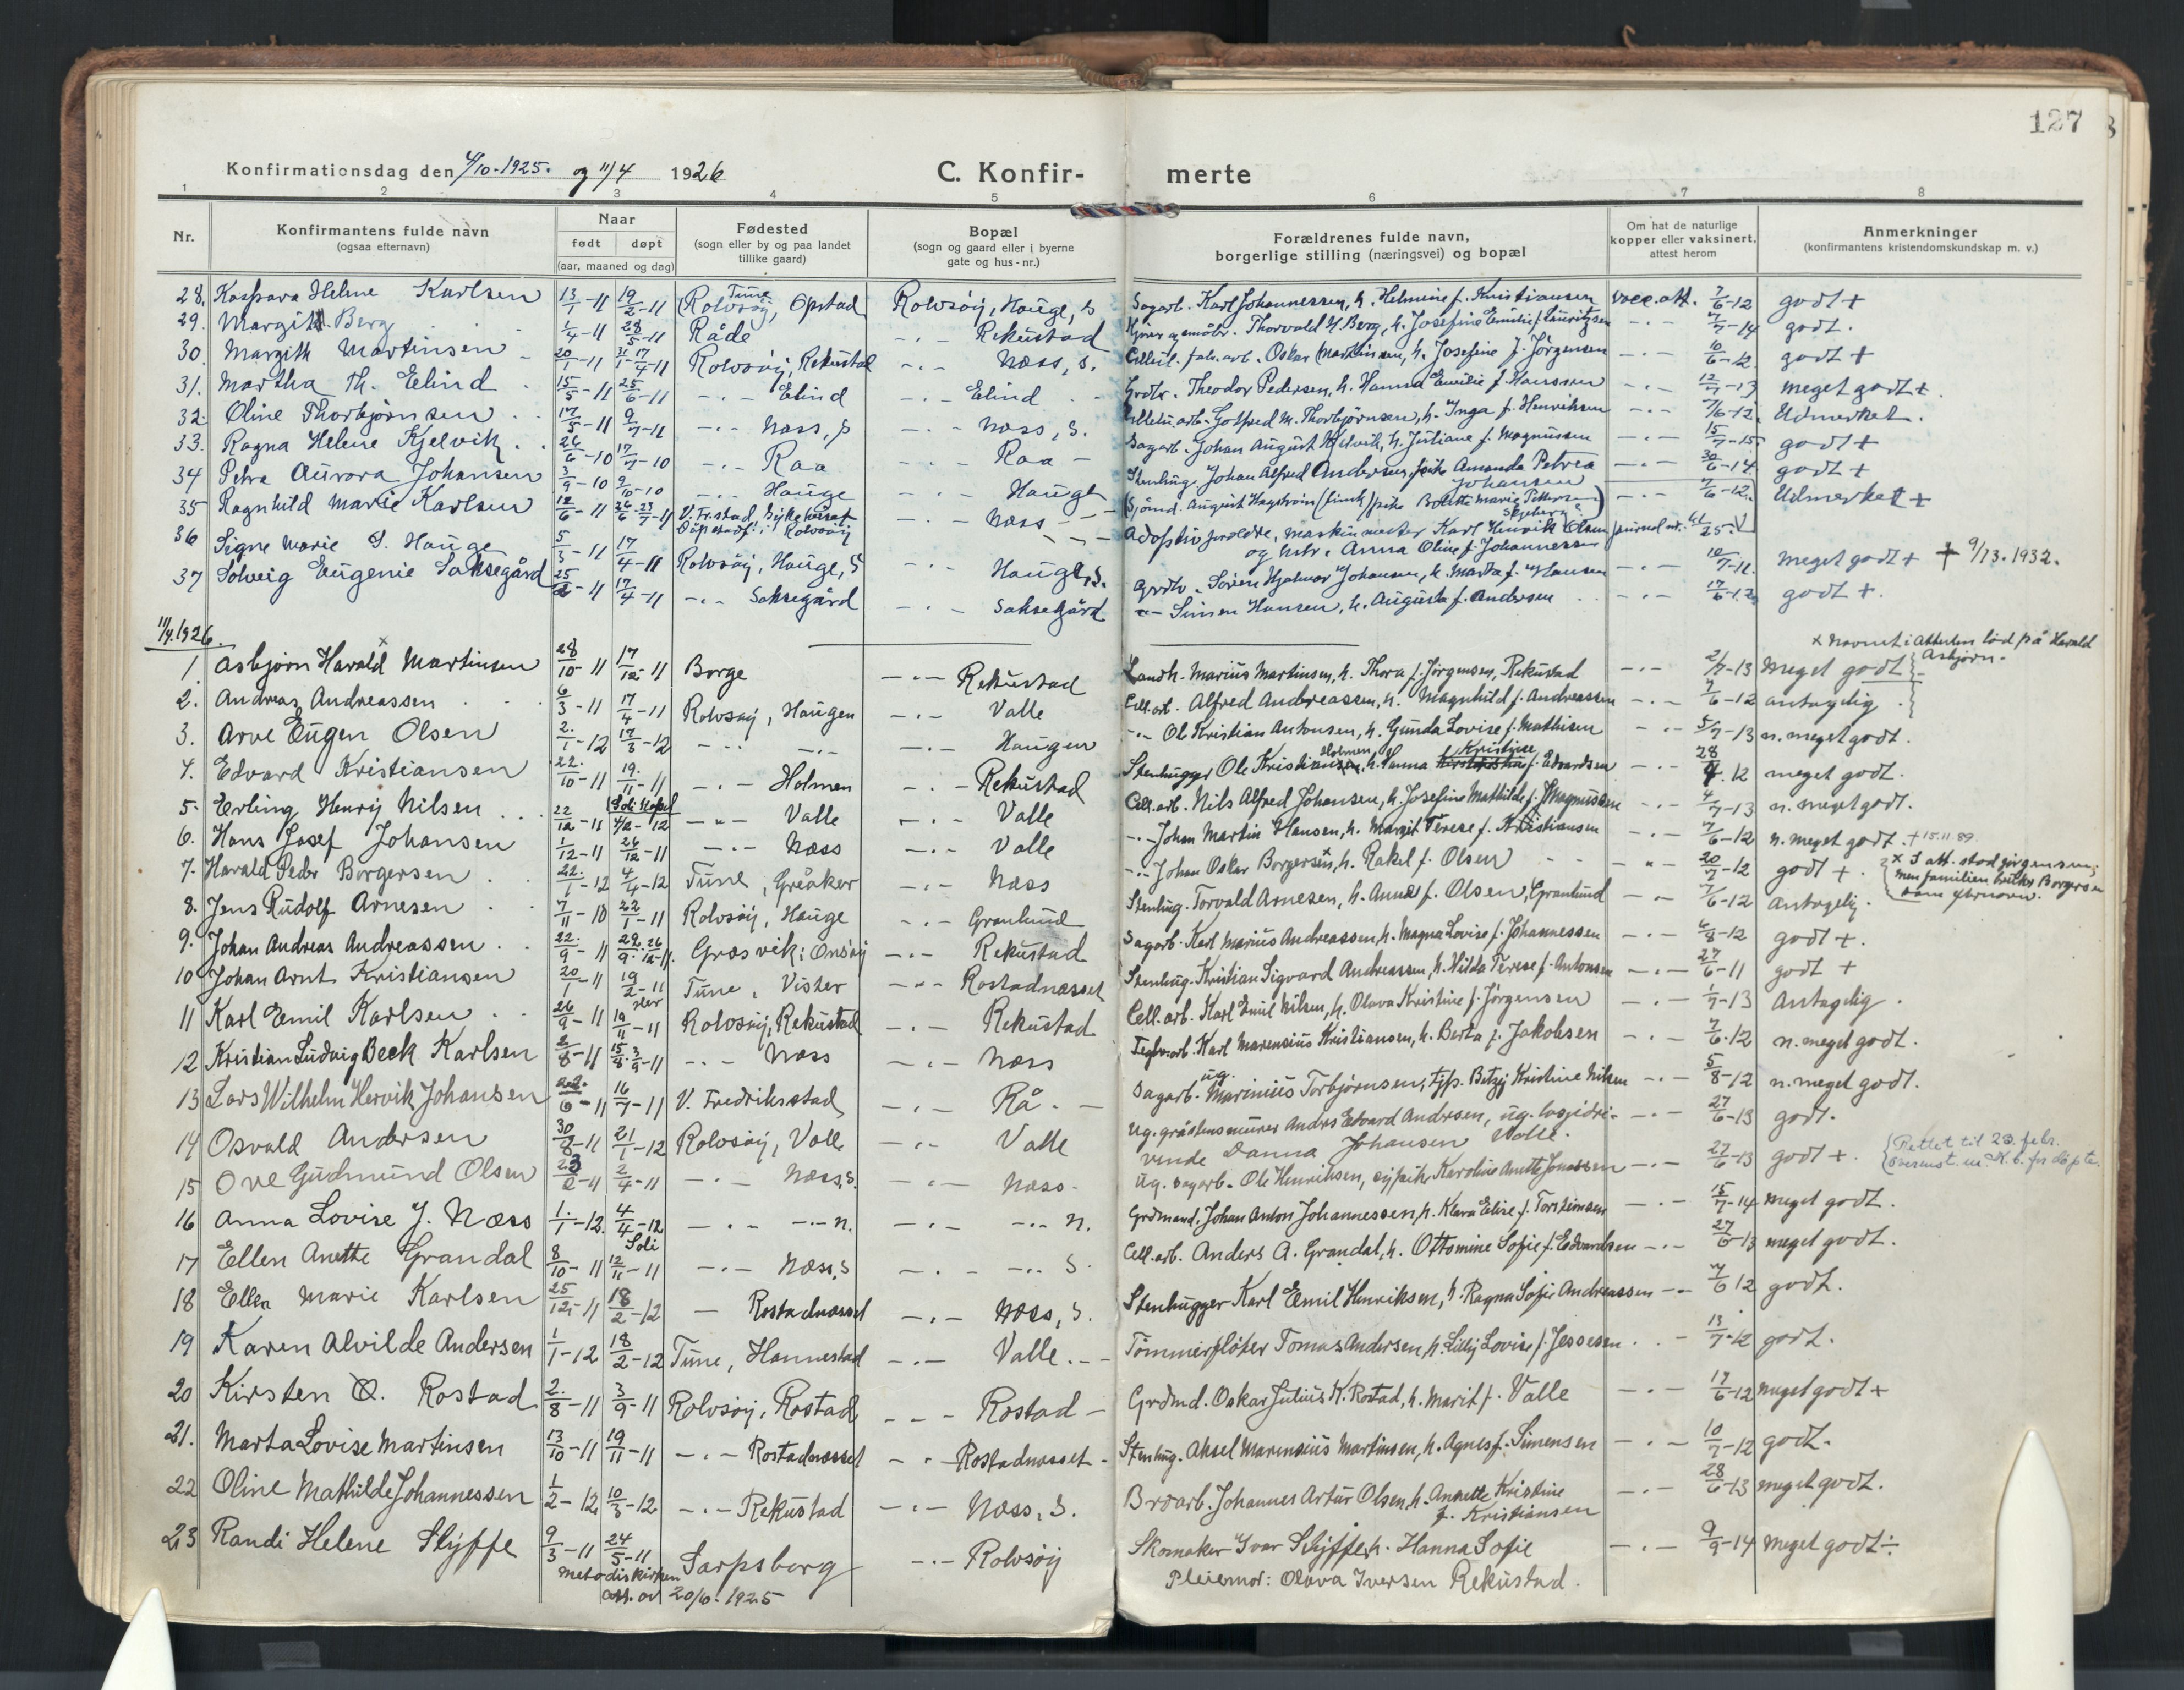 127
Konfirmationsdag den 4/10-1925. og 11/4 1926 C. Konfirmerte
1 2 3 4 5 6 7 8
Nr. Konfirmantens fulde navn (ogsaa efternavn) Naar født døpt (aar, maaned og dag) Fødested (sogn eller by og paa landet tillike gaard) Bopæl (sogn og gaard eller i byerne gate og hus-nr.) Forældrenes fulde navn, borgerlige stilling (næringsvei) og bopæl Om hat de naturlige kopper eller vaksinert, attest herom Anmerkninger (konfirmantens kristendomskundskap m. v.)
28. Kaspara Helene Karlsen 13/1-11 19/2-11 Tune (Rolvsøy, Opstad Rolvsøy, Hauge, s Sagarb. Karl Johannessen, h. Helmine f. Kristiansen vacc. att. 7/6-12 godt +
29. Margit Berg 1/4-11 28/5-11 Råde -.- Rekustad Thorvald Berg, h. Josefine Emilie f. Lauritzen -.- 7/7-14 godt.
30. Margith Martinsen 20/1-11 17/4-11 Rolvsøy, Rekustad -.- Næss, s. Oskar Martinsen, h. Josefine f. Jørgensen -.- 10/6-12 godt +
31. Martha Th. Elind 15/5-11 25/6-11 -.- Elind -.- Elind Theodor Pedersen, h. Hanna Emilie f. Hanssen -.- 12/7-13 meget godt +
32. Oline Thorbjørnsen 17/5-11 9/7-11 -.- Næss, s -.- Næss, s. Gotfred M. Thorbjørnsen, h. Inga f. Henriksen -.- 7/6-12. Udmerket.
33. Ragna Helene Kjelvik 26/6-10 17/7-10 -.- Raa -.- Raa - Sagarb. Johan August Kjelvik, h. Juliane f. Magnussen -.- 15/7-15 godt +
34 Petra Aurora Johansen 3/9-10 9/10-10 -.- Hauge -.- Hauge Stenhug. Johan Alfred Andersen, pike Amanda Petrea Johansen -.- 30/6-14 godt +
35 Ragnhild Marie Karlsen 12/6-11 V. Fr.stad -.- Næss (Sjømd. August Hagstrøm (finsk) pike Marie Pettersen) -.- 7/6-12. Udmerket +
Adoptivforældre, maskinmester Karl Henrik Olsen journal nr.
og hstr. Anna Oline f. Johannessen
36 Signe Marie S. Hauge 5/3-11 17/4-11 Rolvsøy, Hauge, s -.- Hauge, s. Grdbr. Søren Hjalmar Johansen, h. Marta f. Hansen -.- 10/7-11. meget godt + † 9/13.1932.
37 Solveig Eugenie Saksegård 25/2-11 17/4-11 -.- Saksegård -.- Saksegård -.- Simen Hansen, h. Augusta f. Andersen -.- 17/6-12 godt +.
11/4.1926.
x Navnet i attesten lød på Harald Asbjørn.
1. Asbjørn Harald x Martinsen 28/10-11 17/12-11 Borge -.- Rekustad Landh. Marius Martinsen, h. Thora f. Jørgensen, Rekustad -.- 2/7-13 meget godt
2. Andreas Andreassen 6/3-11 17/4-11 Rolvsøy, Haugen -.- Valle Cell.arb. Alfred Andreassen, h. Magnhild f. Andreassen -.- 7/6-12 antagelig.
3. Arve Eugen Olsen 2./1-12 17/3-12 -.- -.- -.- Haugen -.- Ole Kristian Antonsen, h. Gunda Lovise f. Mathisen -.- 5/7-13 n. meget godt.
4. Edvard Kristiansen 22./10-11 19./11-11 -.- Holmen -.- Rekustad Stenhugger Ole Kristiansen, Holmen, h. Hanna Kristine f. Edvardsen -.- 28/7.12 meget godt.
5. Erling Henry Nilsen 22/12-11 Soli kapel 4/2-12 -.- Valle -.- Valle Cell.arb. Nils Alfred Johansen, h. Josefine Mathilde f. Magnussen -.- 4/7-13 n. meget godt.
6. Hans Josef Johansen 1/12-11 26/12-11 -.- Næss -.- Valle -.- Johan Martin Hansen, h. Margit Terese f. Kristiansen -.- 7/6-12 n. meget godt. + 15.11.89.
7. Harald Peder Borgersen 22./1-12 4/4-12 Tune, Greåker -.- Næss -.- Johan Oskar Borgersen x, h. Rakel f. Olsen -.- 20/7-12 godt +. x I att. stod Jørgensen, men familien bruker Borgersen som efternavn.
8. Jens Rudolf Arnesen 7/11-10 22/1-11 Rolvsøy, Hauge -.- Granlund Stenhug. Torvald Arnesen, h. Anna f. Olsen, Granlund -.- 7/6-12 antagelig.
9. Johan Andreas Andreassen 22./9-11 Græsvik i Onsøy -.- Rekustad Sagarb. Karl Marius Andreassen, h. Magna Lovise f. Johannessen -.- 6/8-12 godt +.
10 Johan Arnt Kristiansen 20/1-11 19/2-11 Tune, Vister -.- Rostadnæsset Stenhug. Kristian Sigvard Andreassen, h. Hilda Terese f. Antonsen -.- 27/6-11 godt +
11 Karl Emil Karlsen 26/9-11 19/11-11 Rolvsøy, Rekustad -.- Rekustad Cell. arb. Karl Emil Nilsen, h. Olava Kristine f. Jørgensen -.- 1/7-13 Antagelig.
12 Kristian Ludvig Beck Karlsen 2/8-11 -.- Næss -.- Næss Teglv.arb. Karl Marensius Kristiansen, h. Berta f. Jakobsen -.- 7/6-12 n. meget godt.
13 Lars Wilhelm Hervik Johansen 22./6-11 16/7-11 V. Fredriksstad -.- Rå. - ug. Sagarb. Marinius Torbjørnsen, tjp. Betzy Kristine Nilsen -.- 5/8-12 n. meget godt.
14 Osvald Andersen 30/8-11 21/1-12 Rolvsøy, Valle -.- Valle Ug. gråstensmurer Anders Edvard Andersen, ug. losjedrivende Danna Johansen Valle. -.- 27/6-13 godt.
15 Ove Gudmund Olsen 23/2-11 2/4-11 -.- Næss, s. -.- Næss. Ug. sagarb. Ole Henriksen, sypike Karoline Anette Jonassen -.- 27/6-13 godt +. {Rettet til 23. febr. overenst. m. K.b. for døpte.
16 Anna Lovise J. Næss 1./1-12. 4/4-12 -.- -.- n. -.- -.- n. Grdmand. Johan Anton Johannessen, h. Klara Elise f. Torstensen -.- 15/7-14 meget godt.
17 Ellen Anette Grandal 8/10-11 Soli 12/11-11 -.- Næss, s -.- -.- s. Cell. arb. Anders A. Grandal, h. Ottomine Sofie f. Edvardsen -.- 27/6-13 meget godt.
18 Ellen Marie Karlsen 25/12-11 18/2-12 - Rostadnæsset -.- Næss, s. Stenhugger Karl Emil Henriksen, h. Ragna Sofie Andreassen -.- 7/6 12 godt.
19 Karen Alvilde Andersen 1/1-12 18/2-12 Tune, Hannestad -.- Valle.-- Tømmerfløter Tomas Andersen, h. Lilly Lovise f. Jessesen -.- 13/7-12 godt.
20 Kirsten O. Rostad 2./8-11 3/9-11 Rolvsøy, Rostad --- Rostad - Grdmd. Oskar Julius K. Rostad, h. Marit f. Valle -.- 17/6-12 meget godt +
21. Marta Lovise Martinsen 13/10-11 19/11-11 -.- Rostadnæsset -.- Rostadnæsset - Stenhug. Aksel Marensius Martinsen, h. Agnes f. Simensen -.- 10/7-12 godt.
22 Oline Mathilde Johannessen 1/2-12 10/3-12 -.- Rekustad -.- Næss, s. Brdarb. Johannes Artur Olsen, h. Annette Kristine f. Kristiansen -.- 28/6-13 meget godt.
23 Randi Helene Slyffe 9/3-11 24/5-11 Sarpsborg -.- Rolvsøy Skomaker Ivar Slyffe, h. Hanna Sofie -.- 9/9-14 meget godt ÷
metodistkirken
att. av 20/6. 1925
Pleiemor: Olava Iversen Rekustad.